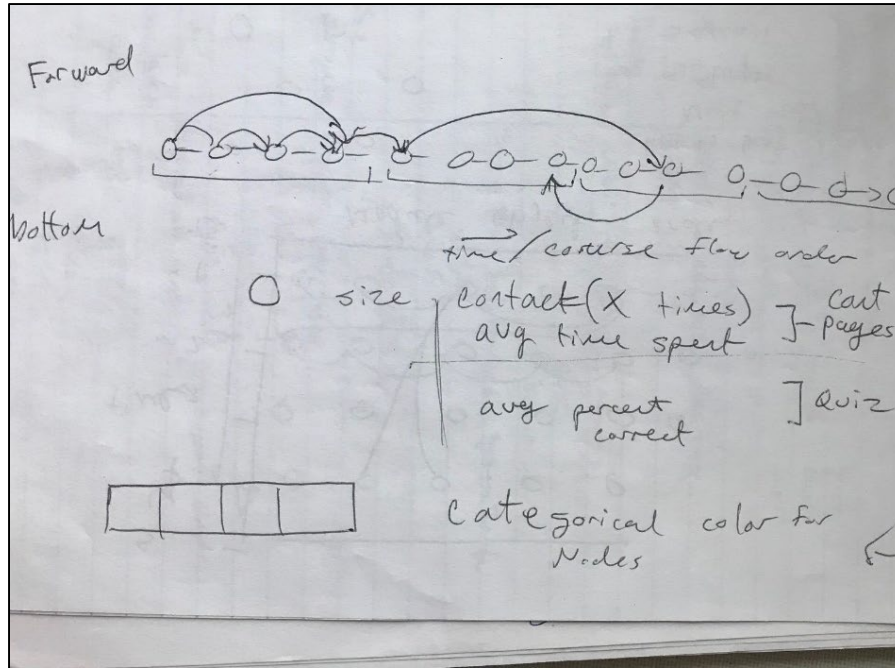 Forward
bottom
time/course flow order
size
contact (X times)
avg time spent
pages
avg percent
correct
Quiz
categorical color for
Nodes